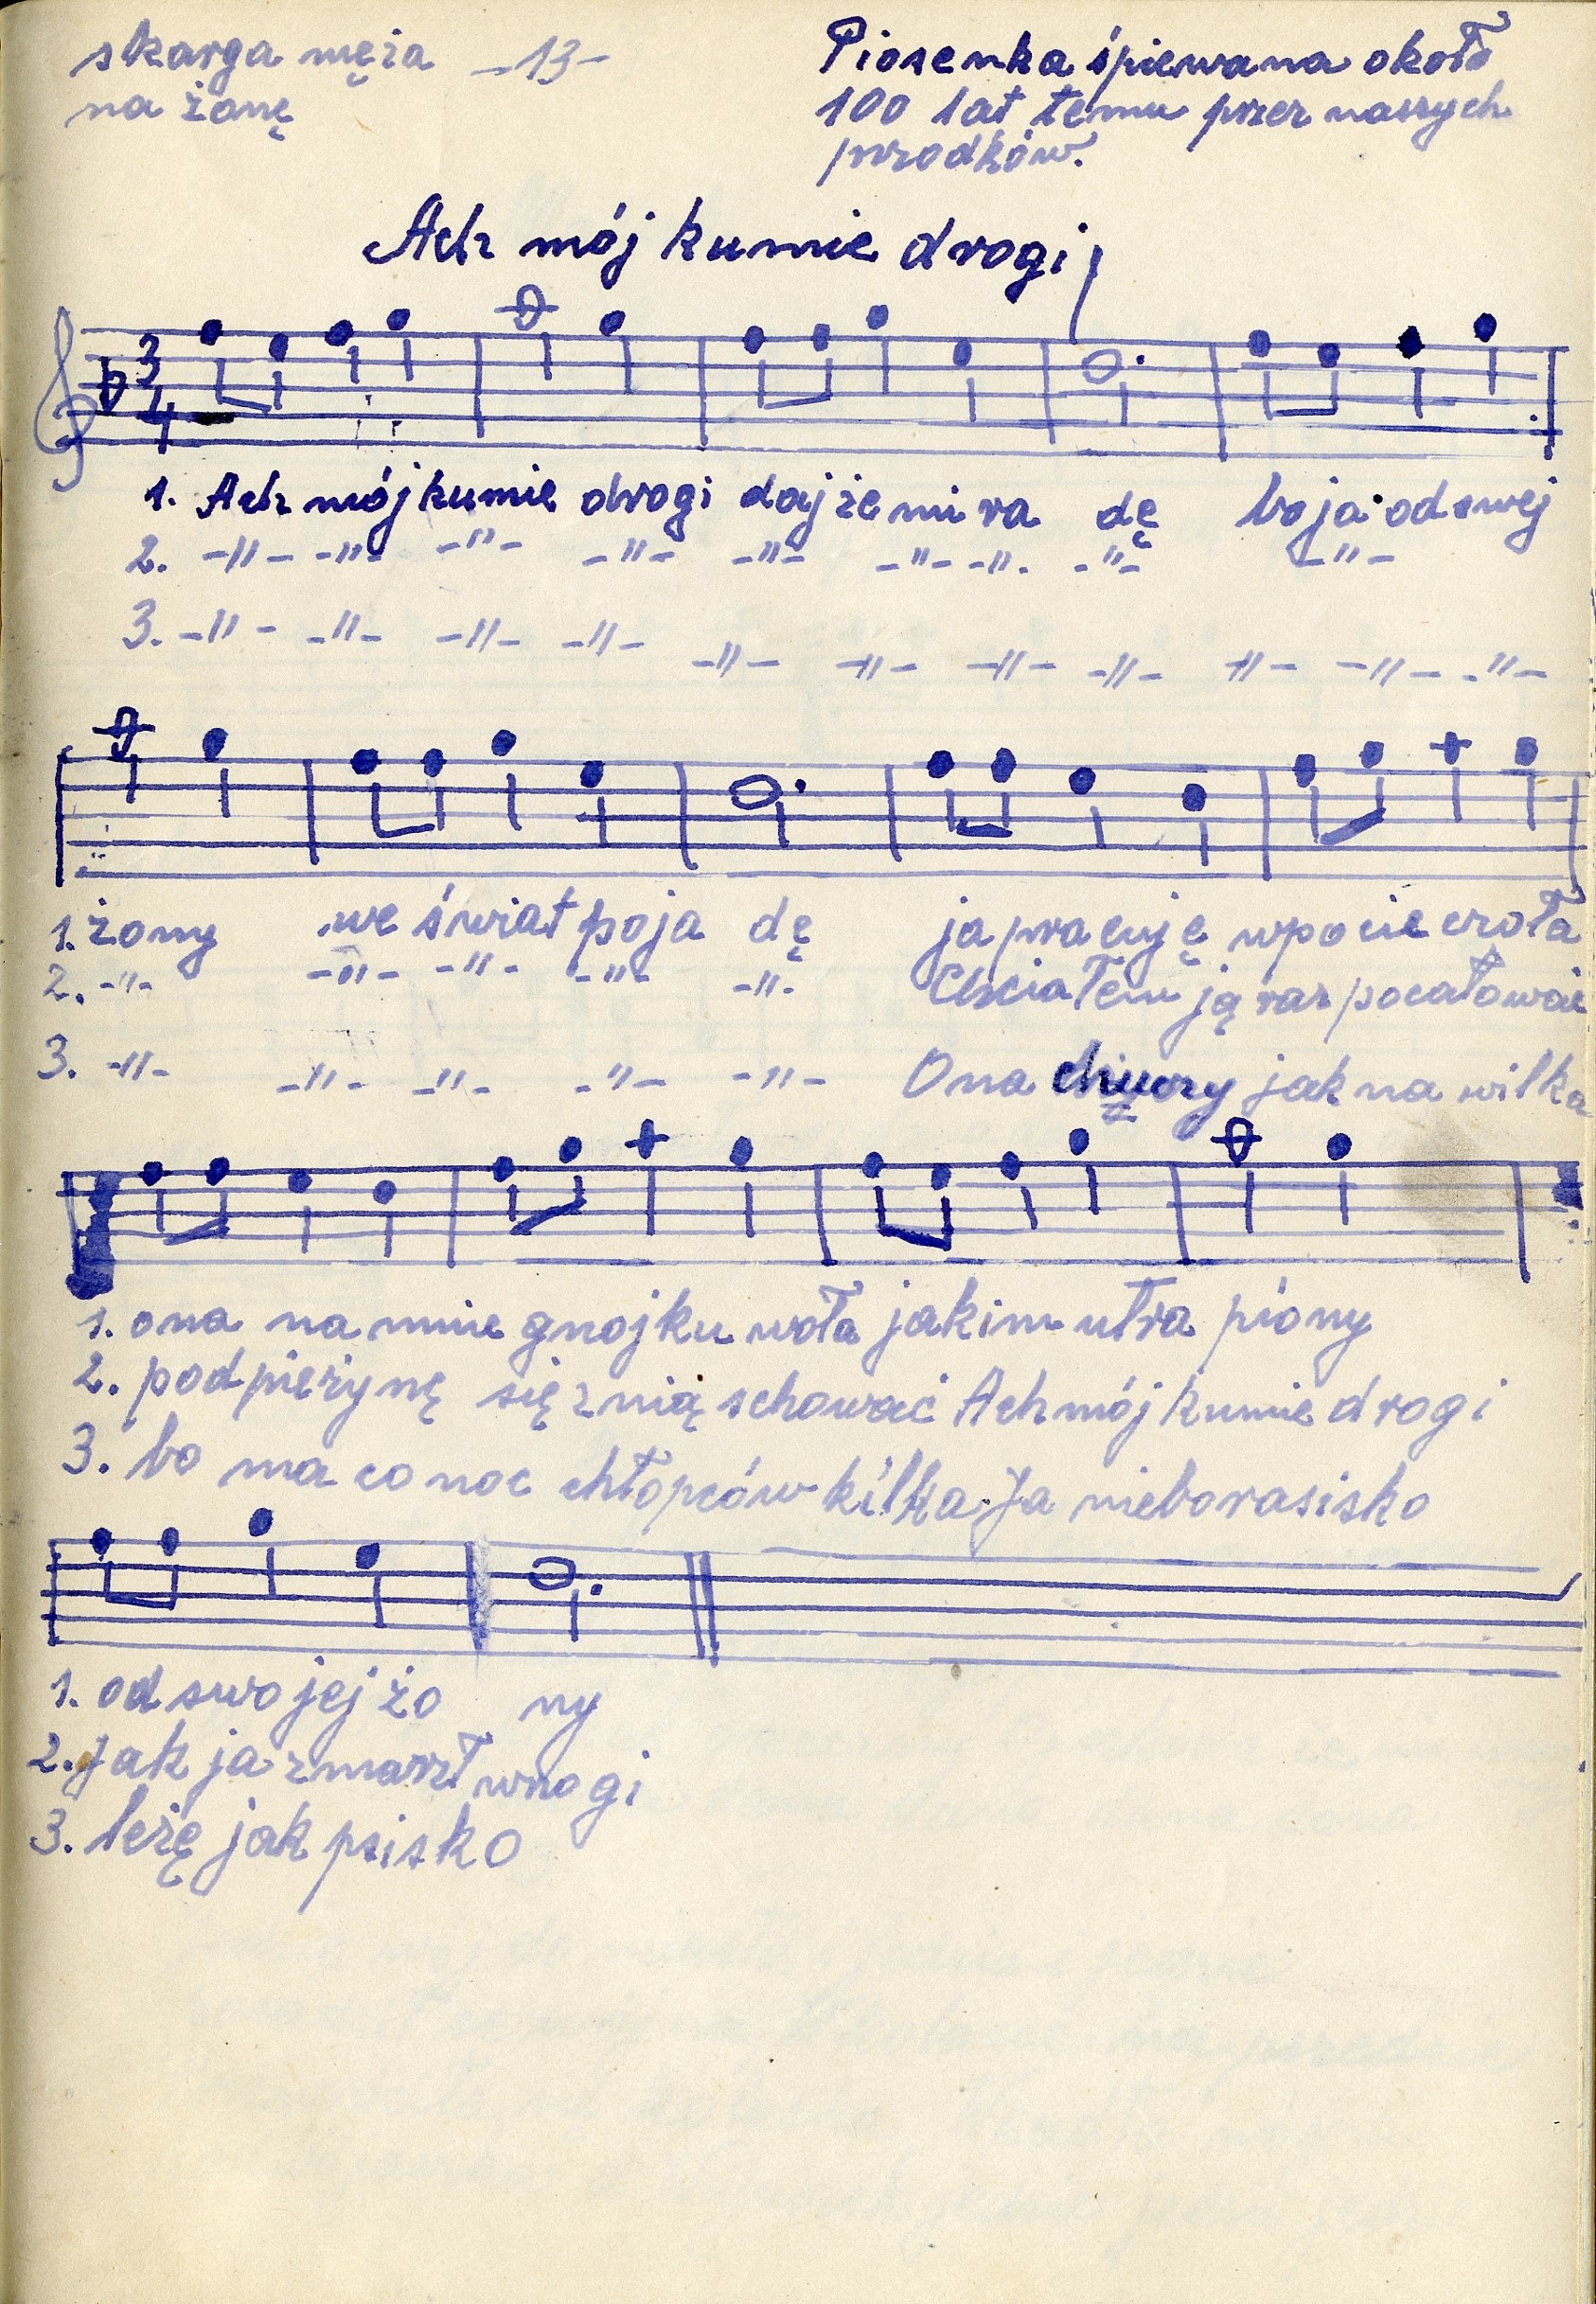 skarga męża
na żonę
-13-
Piosenka śpiewana około
100 lat temu przez naszych
przodków.
Ach mój kumie drogi
3
4
1. Ach mój kumie drogi dajże mi ra dę bo ja od swej
2. -"- -"- -"- -"- -"- -"- -"- -"- -"-
3. -"- -"- -"- -"- -"- -"- -"- -"- -"- -"- -"-
1. żony we świat poja dę ja pracuję wpocie czoła
2. -"- -"- -"- -"- -"- Chciałem ją raz pocałować
3. -"- -"- -"- -"- -"- Ona jak na wilka
1. ona na mnie gnojku woła jakim utra piony
2. pod pierzynę się z nią schować Ach mój kumie drogi
3. bo ma co noc chłopców kilka Ja nieborasisko
1. od swo jej żo ny
2. Jak ja zmarzł wnogi
3. leżę jak psisko